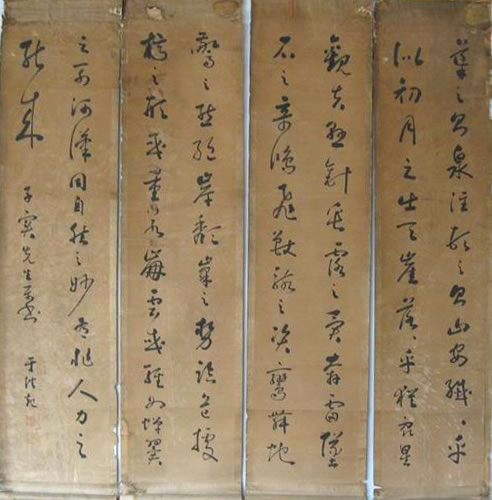 導之則泉注頓之則山安纖纖乎
似初月之出天崖落落乎猶眾星
觀夫懸針垂露之異奔雷墜
石之奇鴻飛獸駭之資鸞舞蛇
驚之態絕岸頹峰之勢臨危據
槁之形或重若崩雲或輕如蟬翼
之列河漢同自然之妙有非人力之
能成
子實先生